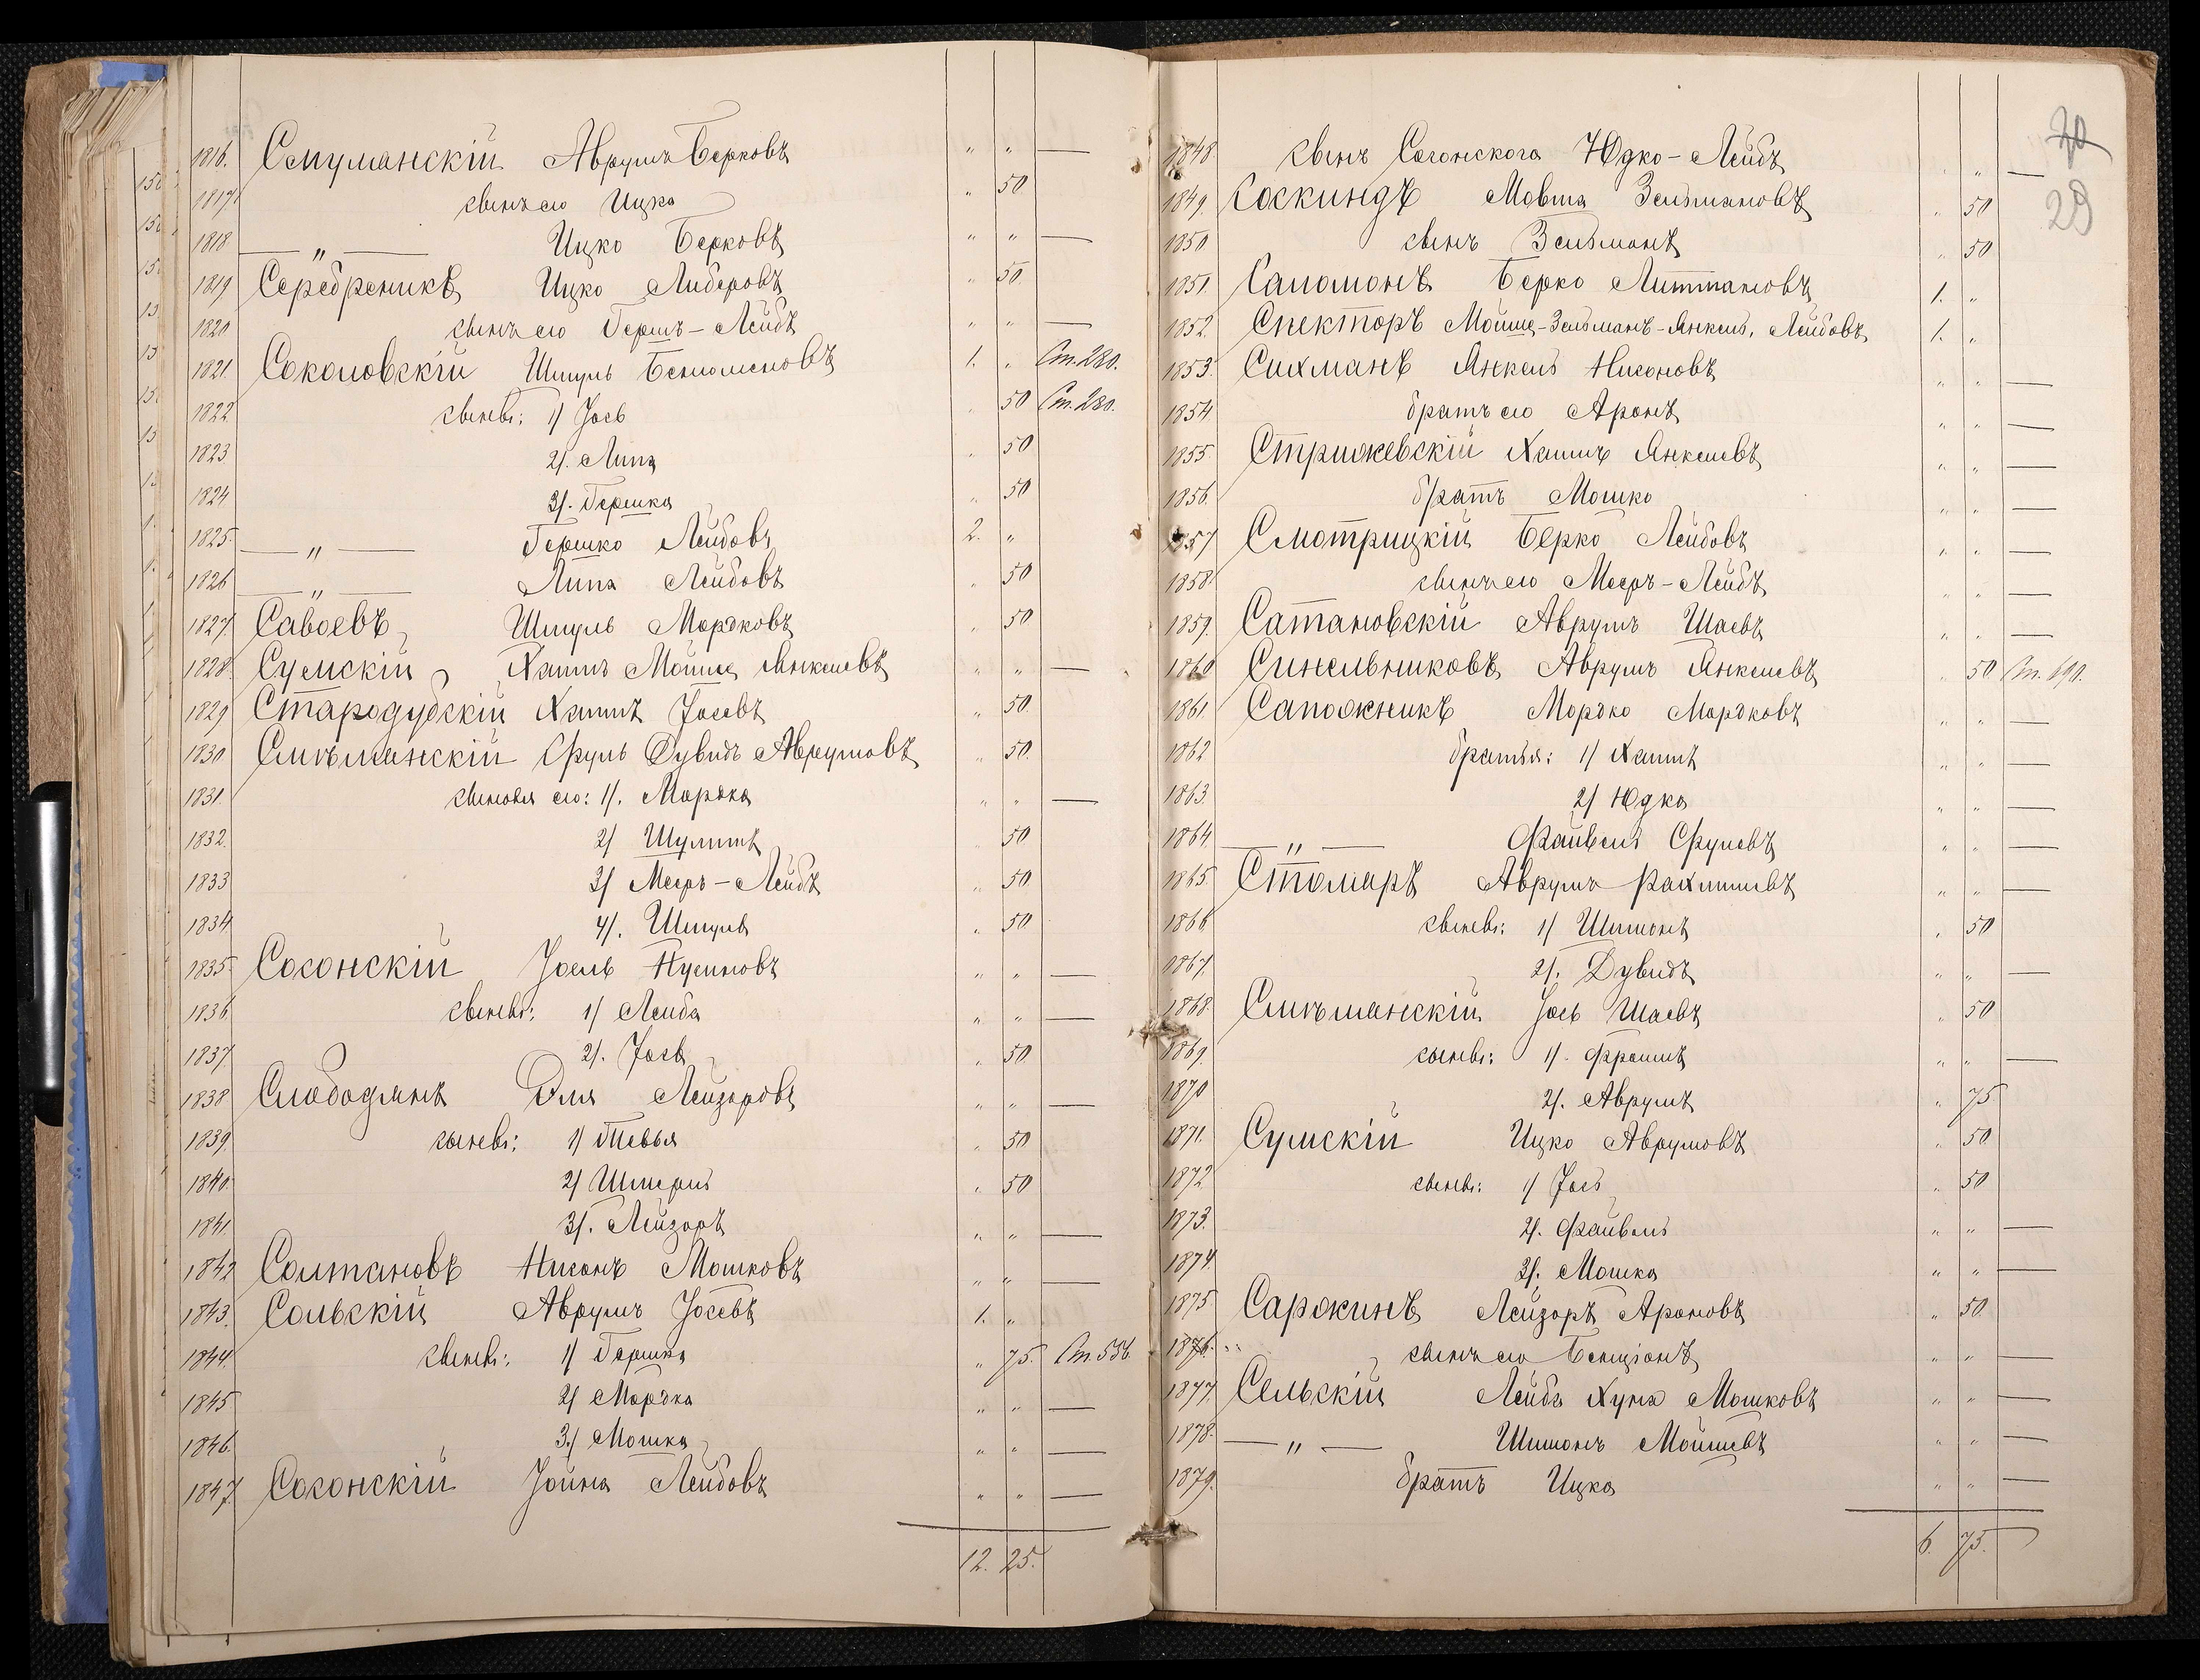 1816. Смуманскій Аврумъ Берковъ " " —
1817 сынъ его Ицко " 50
1818 — " — Ицко Берковъ " " —
1819 Серебреникъ Ицко Либеровъ " 50
1820 сынъ его Гершъ-Лейбъ " " —
1821. Соколовскій Шмуль Беньоменовъ 1. " Ст. 280.
1822 сыновь: 1/ Іось " 50 Ст. 280.
1823 2/. Липа " 50
1824 3/. Гершко " 50
1825. — " — Гершко Лейбовъ 2. "
1826 — " — Липа Лейбовъ " 50
1827. Савоевъ Шмуль Мордковъ " 50
1828. Суемскій Хаимъ Мойше Янкелевъ " " —
1829 Стародубскій Хаимъ Іосевъ " 50.
1830 Смѣлянскій Сруль Дувидъ Аврумовъ " 50.
1831. сыновья его: 1/. Мордко " " —
1832. 2/ Шулимъ " 50
1833 3/ Мееръ-Лейбъ " 50
1834 4/. Шмуль " 50
1835. Согонскій Іоель Нусиновъ " " —
1836 сыневь: 1/ Лейба " " —
1837 2/. Іось " 50
1838 Слободянъ Эля Лейзоровъ " " —
1839. сыневь: 1/ Тевья " 50
1840. 2/ Шмерль " 50
1841. 3/. Лейзоръ " " —
1842 Солтановъ Нисонъ Мошковъ " " —
1843. Сольскій Аврумъ Іосевъ 1. "
1844 сыневь: 1/ Гершко " 75. Ст. 556.
1845 2/ Мордко " " —
1846. 3/ Мошко " " —
1847. Согонскій Іойна Лейбовъ " " —
12. 25.
70
29
1848 сынъ Согонскаго Юдко-Лейбъ " " —
1849. Соскиндъ Мовша Зельмановъ " 50
1850 сынъ Зельманъ " 50
1851. Саломонъ Берко Литмановъ 1. "
1852. Спекторъ Мойше-Зельманъ-Янкель, Лейбовъ 1. "
1853. Сихманъ Янкель Нисоновъ " " —
1854 братъ его Аронъ " " —
1855. Стрижевскій Хаимъ Янкелевъ " " —
1856. братъ Мошко " " —
1857 Смотрицкій Берко Лейбовъ " " —
1858. сынъ его Мееръ-Лейбъ " " —
1859. Сатановскій Аврумъ Шаевъ " " —
1860 Синельниковъ Аврумъ Янкелевъ " 50 Ст. 690.
1861. Сапожникъ Мордко Мордковъ " " —
1862 братья: 1/ Хаимъ " " —
1863. 2/ Юдко " " —
1864. — " — Файвель Срулевъ " " —
1865 Столяръ Аврумъ Рахмилевъ " " —
1866 сыневь: 1/ Шимонъ " 50
1867. 2/. Дувидъ " " —
1868. Смѣлянскій Іось Шаевъ " 50
1869. сыневь: 1/. Фроимъ " " —
1870 2/. Аврумъ " 75
1871. Сумскій Ицко Аврумовъ " 50
1872 сыневь: 1/ Іось " 50
1873. 2/. Файвель " " —
1874. 3/. Мошко " " —
1875 Сорокинъ Лейзоръ Ароновъ " 50
1876. сынъ его Бенціонъ " " —
1877. Сельскій Лейба Хуна Мошковъ " " —
1878. — " — Шимонъ Мойшевъ " " —
1879. братъ Ицко " " —
6. 75.